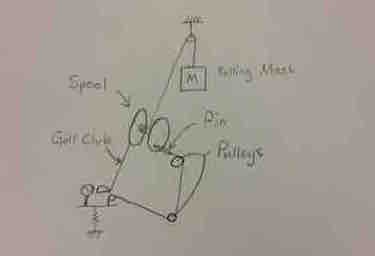 M
Falling Mass
Spool
Pin
Golf Club
Pulleys